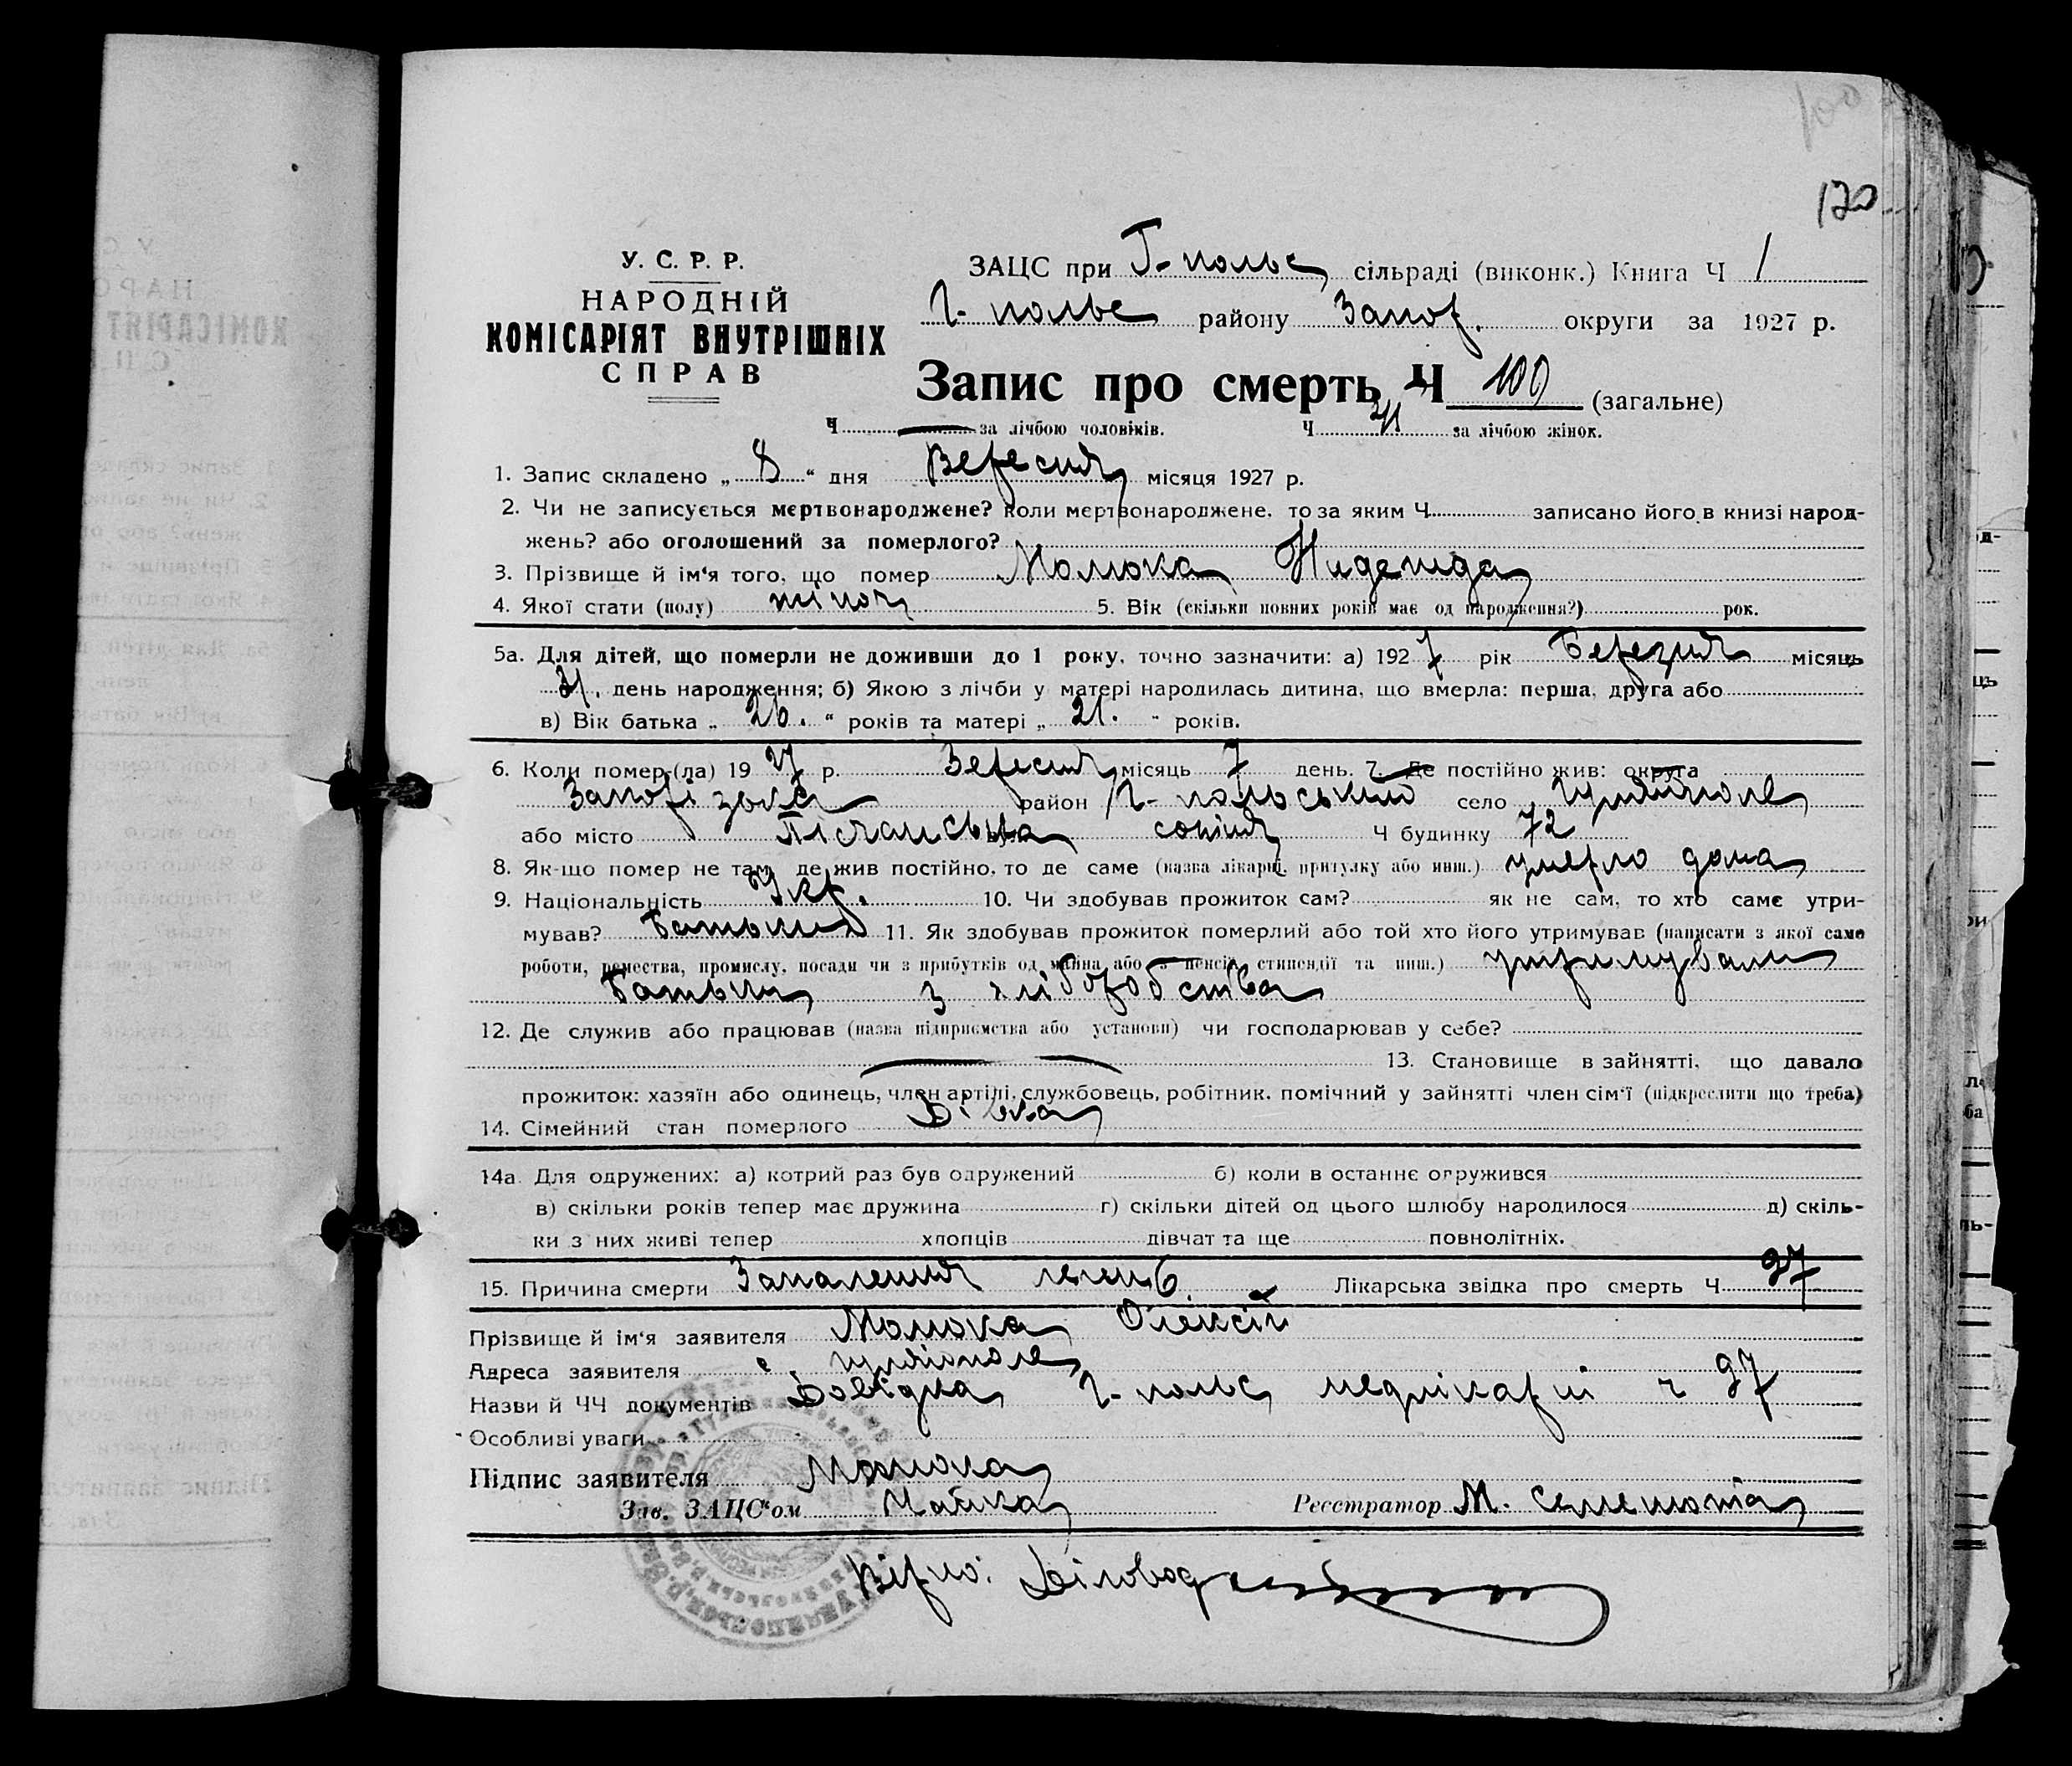 100
170
У. С. Р. Р.
НАРОДНІЙ
КОМІСАРІЯТ ВНУТРІШНІХ
СПРАВ
ЗАЦС при Г-польс сільраді (виконк.) Книга Ч 1
Г-польс району Запор. округи за 1927 р.
Запис про смерть Ч 100 (загальне)
Ч — за лічбою чоловіків. Ч 41 за лічбою жінок.
1. Запис складено „ 8 " дня Вересня місяця 1927 р.
2. Чи не записується мертвонароджене? Коли мертвонароджене, то за яким Ч. записано його в книзі народ-
жень? або оголошений за померлого?
3. Прізвище й ім'я того, що помер Молюка Надежда
4. Якої стати (полу) жіноч 5. Вік (скільки повних років має од народження?) рок.
5а. Для дітей, що померли не доживши до 1 року, точно зазначити: а) 1927 рік Березня місяць
день народження; б) Якою з лічби у матері народилась дитина, що вмерла: перша, друга або
в) Вік батька „ 26. " років та матері „ 21. " років.
6. Коли помер (ла) 1927 р. Вересня місяць 7 день. 7. Де постійно жив: округа
Запорізька район Г-польський село Гуляйполе
або місто сотня Ч будинку 72
8. Як-що помер не там, де жив постійно, то де саме (назва лікарні, притулку або инш.) умерло дома
9. Національність Укр. 10. Чи здобував прожиток сам? як не сам, то хто саме утри-
мував? Батьки 11. Як здобував прожиток померлий або той хто його утримував (написати з якої саме
роботи, ремества, промислу, посади чи з прибутків од майна або з пенсії, стипендії та инш.) утримували
Батьки з хліборобства
12. Де служив або працював (назва підприємства або установи) чи господарював у себе?
13. Становище в зайнятті, що давало
прожиток: хазяїн або одинець, член артілі, службовець, робітник, помічний у зайнятті член сім'ї (підкреслити що треба)
14. Сімейний стан померлого Дівка
14а. Для одружених: а) котрий раз був одружений б) коли в останнє одружився
в) скільки років тепер має дружина г) скільки дітей од цього шлюбу народилося д) скіль-
ки з них живі тепер хлопців дівчат та ще повнолітніх.
15. Причина смерти Запалення легенів. Лікарська звідка про смерть Ч 97
Прізвище й ім'я заявителя Молюка Олексій
Адреса заявителя с. Гуляйполе
Назви й ЧЧ документів Довідка Г-польс медлікарні ч 97
Особливі уваги
Підпис заявителя Молюка
Зав. ЗАЦС'ом Чайка Реєстратор М. Семенюта
Вірно: Діловод